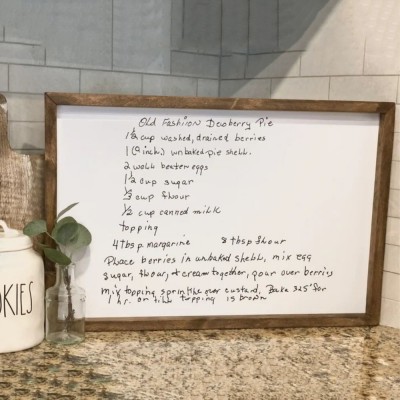 Old Fashion Dewberry Pie
1 1/2 cup washed, drained berries
1 (9 inch) unbaked pie shell.
2 well beaten eggs
1 1/2 cup sugar
1/3 cup flour
1/2 cup canned milk
topping
4 tbsp. margarine 8 tbsp flour
Place berries in unbaked shell, mix egg
sugar, flour, + cream together, pour over berries
mix topping sprinkle over custard. Bake 325° for
1 hr. or till topping is brown
OKIES